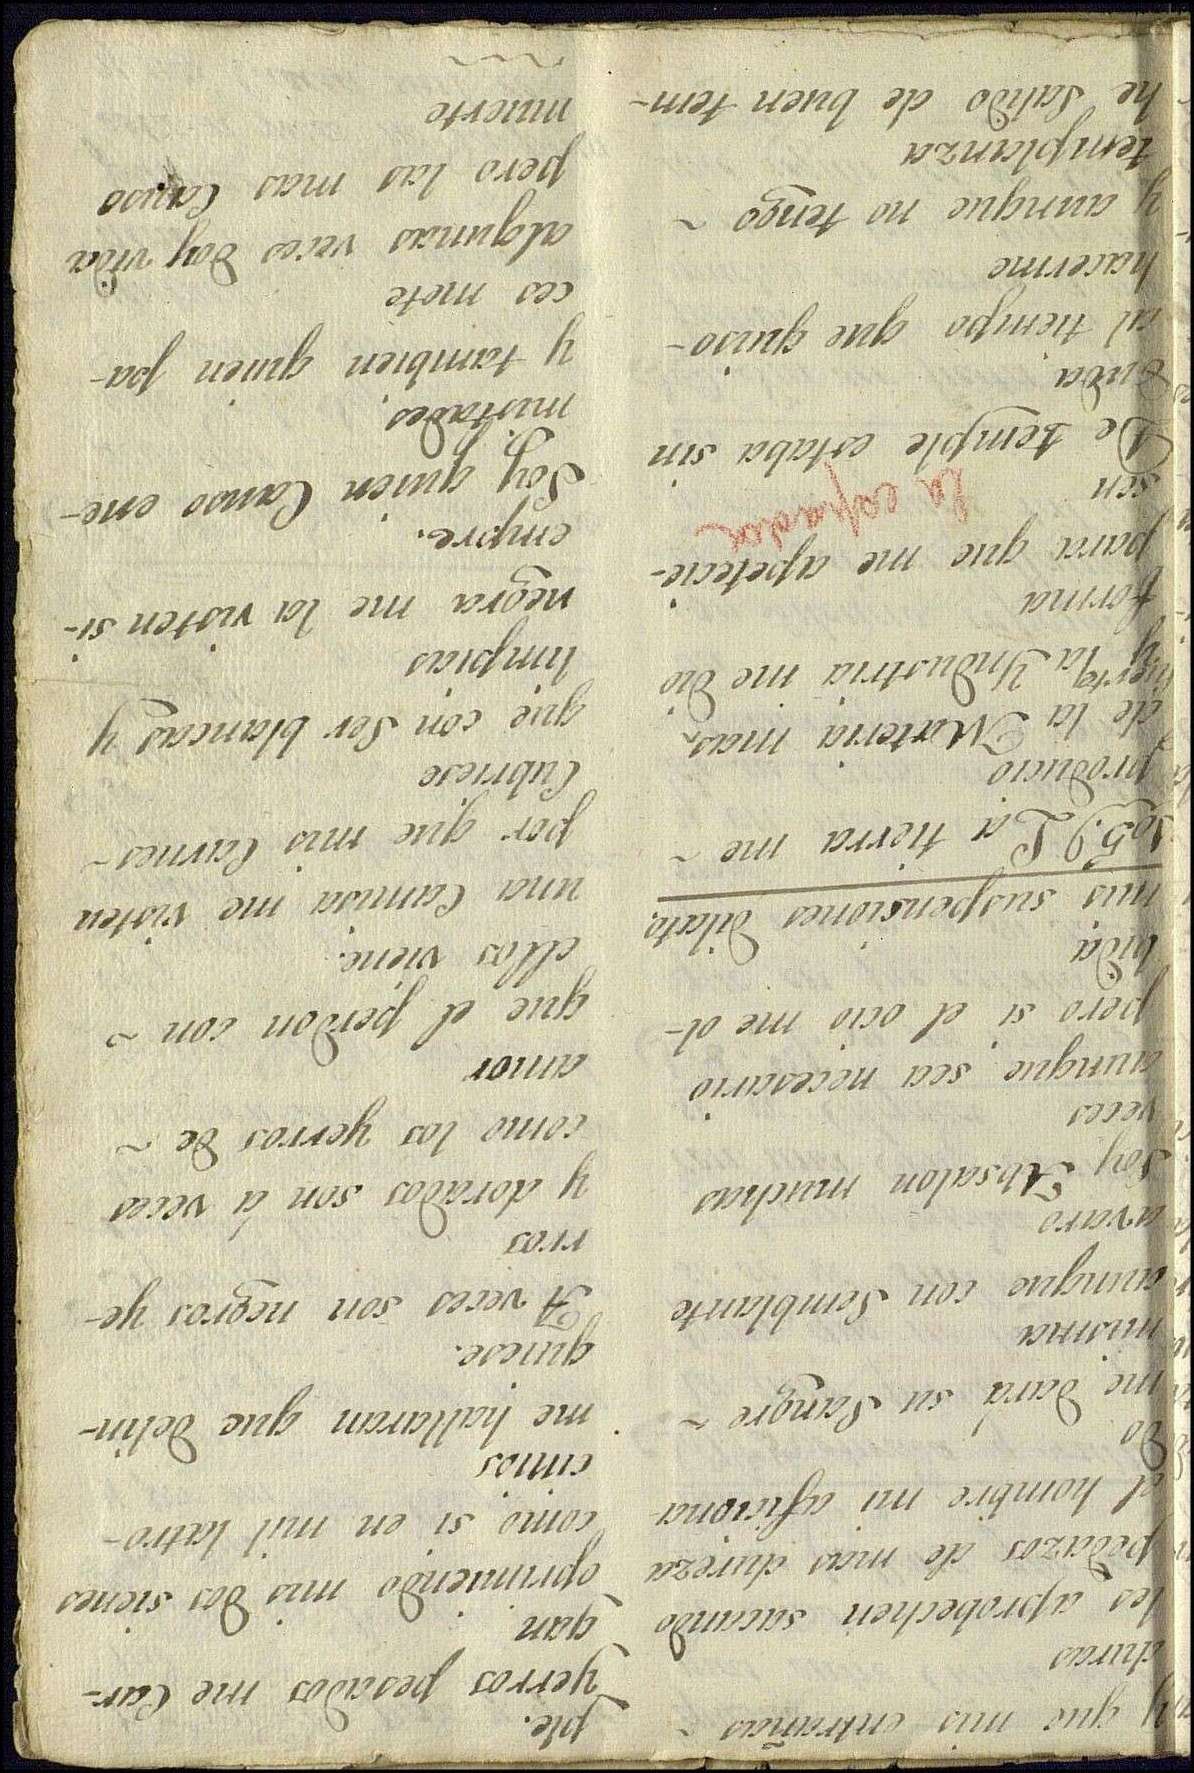 y que mis entrañas ~
duras
les aprobechen sacando
pedazos de mas dureza
el hombre mi aficiona-
do
me dará su Sangre ~
misma
aunque con Semblante
avaro
Soy Absalon muchas
veces
aunque sea necesario
pero si el ocio me ol-
bida
mis suspensiones dilato.
105.) La tierra me ~
producio
de la Materia mas
fuerte
y la Yndustria me dio
forma
para que me apetecie-
sen
la espada
De temple estaba sin
duda
al tiempo que quiso-
hacerme
y aunque no tengo ~
templanza
he Salido de buen tem-
ple.
Yerros pesados me Car-
gan
oprimiendo mis dos sienes
como si en mil latro-
cinios
me hallaran que delin-
quiese.
A veces son negros ye-
rros
y dorados son á veces
como los yerros de ~
amor
que el perdon con ~
ellos viene.
una Camisa me visten
por que mis Carnes-
Cubriese
que con Ser blancas y
limpias
negra me la visten si-
empre.
Soy quien Causo ene-
mistades
y tambien quien pa-
ces mete
algunas veces doy vida
pero las mas Causo
muerte